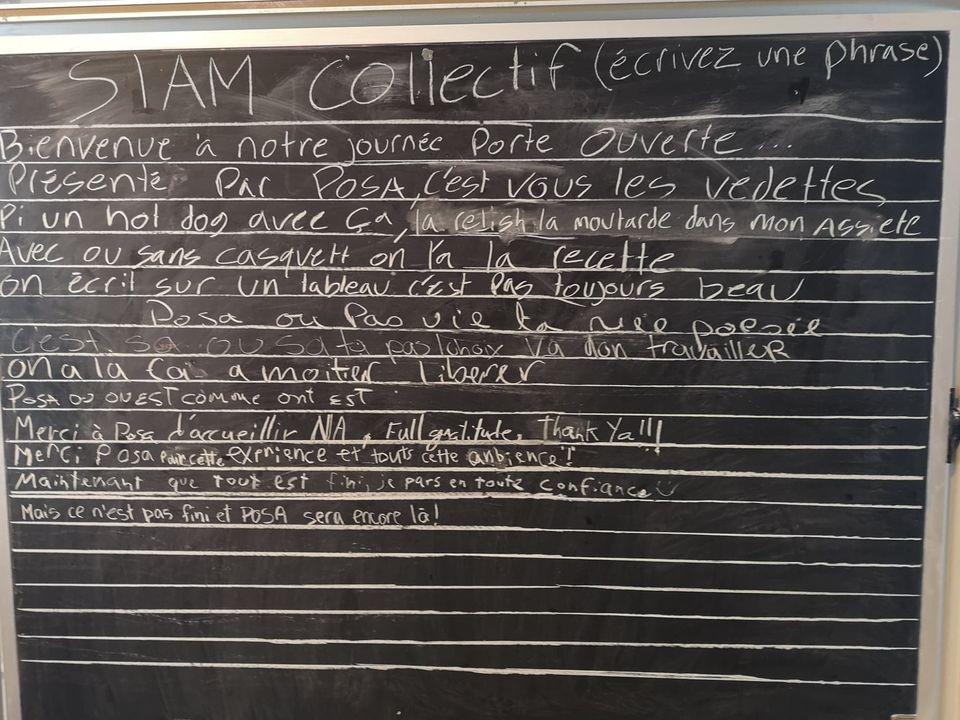 SIAM Collectif (écrivez une phrase)
Bienvenue à notre journée Porte Ouverte...
Présenté Par POSA, c'est vous les vedettes
Pi un hot dog avec ça, la relish la moutarde dans mon Assiete
Avec ou sans casquett on l'a la recette
on écrit sur un tableau c'est Pas toujours beau
Posa ou Pas vie la poésie
C'est ou sa ta pas lchoix va don travailler
on a la fai a moitier liberer
POSA OU OU EST COMME ONT EST
Merci à Posa d'accueillir NA, Full gratitude, Thank Ya!!!
Merci Posa Pour cette expérience et touts cette anbience!!
Maintenant que tout est fini, je pars en toute confiance
Mais ce n'est pas fini et POSA sera encore là!